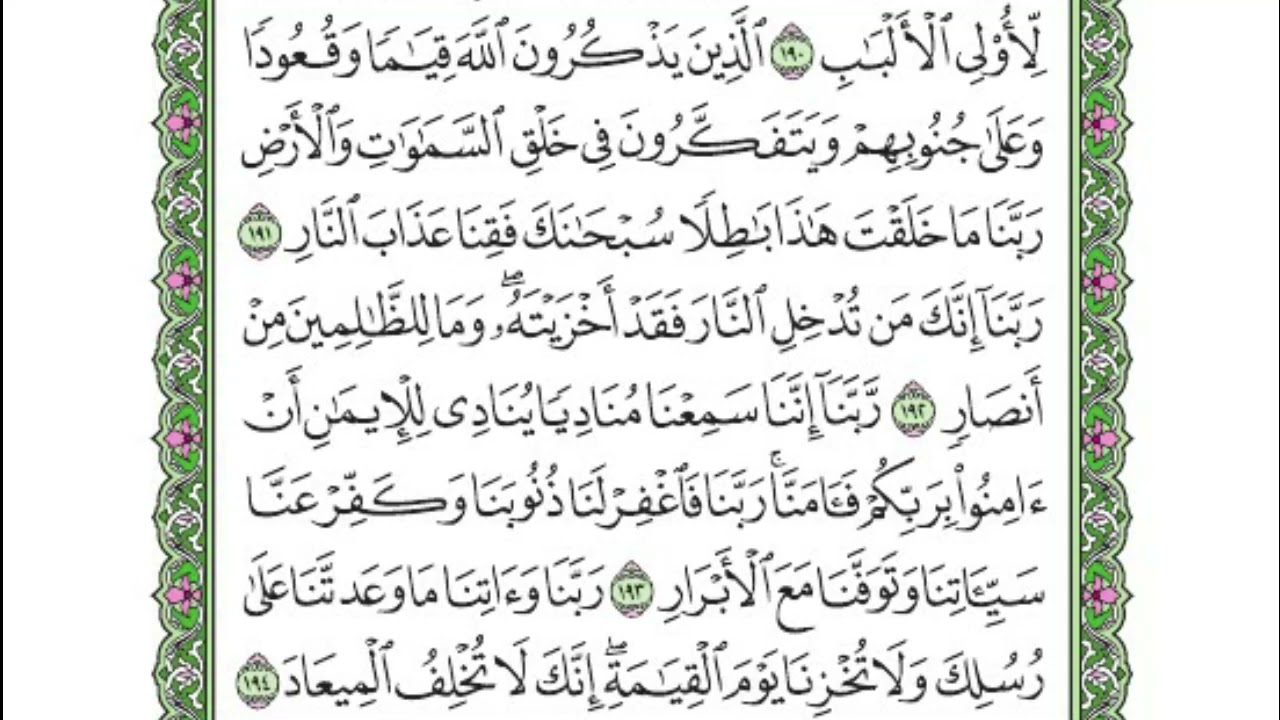 لِّأُوْلِي ٱلۡأَلۡبَٰبِ ١٩٠ ٱلَّذِينَ يَذۡكُرُونَ ٱللَّهَ قِيَٰمٗا وَقُعُودٗا
وَعَلَىٰ جُنُوبِهِمۡ وَيَتَفَكَّرُونَ فِي خَلۡقِ ٱلسَّمَٰوَٰتِ وَٱلۡأَرۡضِ
رَبَّنَا مَا خَلَقۡتَ هَٰذَا بَٰطِلٗا سُبۡحَٰنَكَ فَقِنَا عَذَابَ ٱلنَّارِ ١٩١
رَبَّنَآ إِنَّكَ مَن تُدۡخِلِ ٱلنَّارَ فَقَدۡ أَخۡزَيۡتَهُۥۖ وَمَا لِلظَّٰلِمِينَ مِنۡ
أَنصَارٖ ١٩٢ رَّبَّنَآ إِنَّنَا سَمِعۡنَا مُنَادِيٗا يُنَادِي لِلۡإِيمَٰنِ أَنۡ
ءَامِنُواْ بِرَبِّكُمۡ فَـَٔامَنَّاۚ رَبَّنَا فَٱغۡفِرۡ لَنَا ذُنُوبَنَا وَكَفِّرۡ عَنَّا
سَيِّـَٔاتِنَا وَتَوَفَّنَا مَعَ ٱلۡأَبۡرَارِ ١٩٣ رَبَّنَا وَءَاتِنَا مَا وَعَدتَّنَا عَلَىٰ
رُسُلِكَ وَلَا تُخۡزِنَا يَوۡمَ ٱلۡقِيَٰمَةِۖ إِنَّكَ لَا تُخۡلِفُ ٱلۡمِيعَادَ ١٩٤